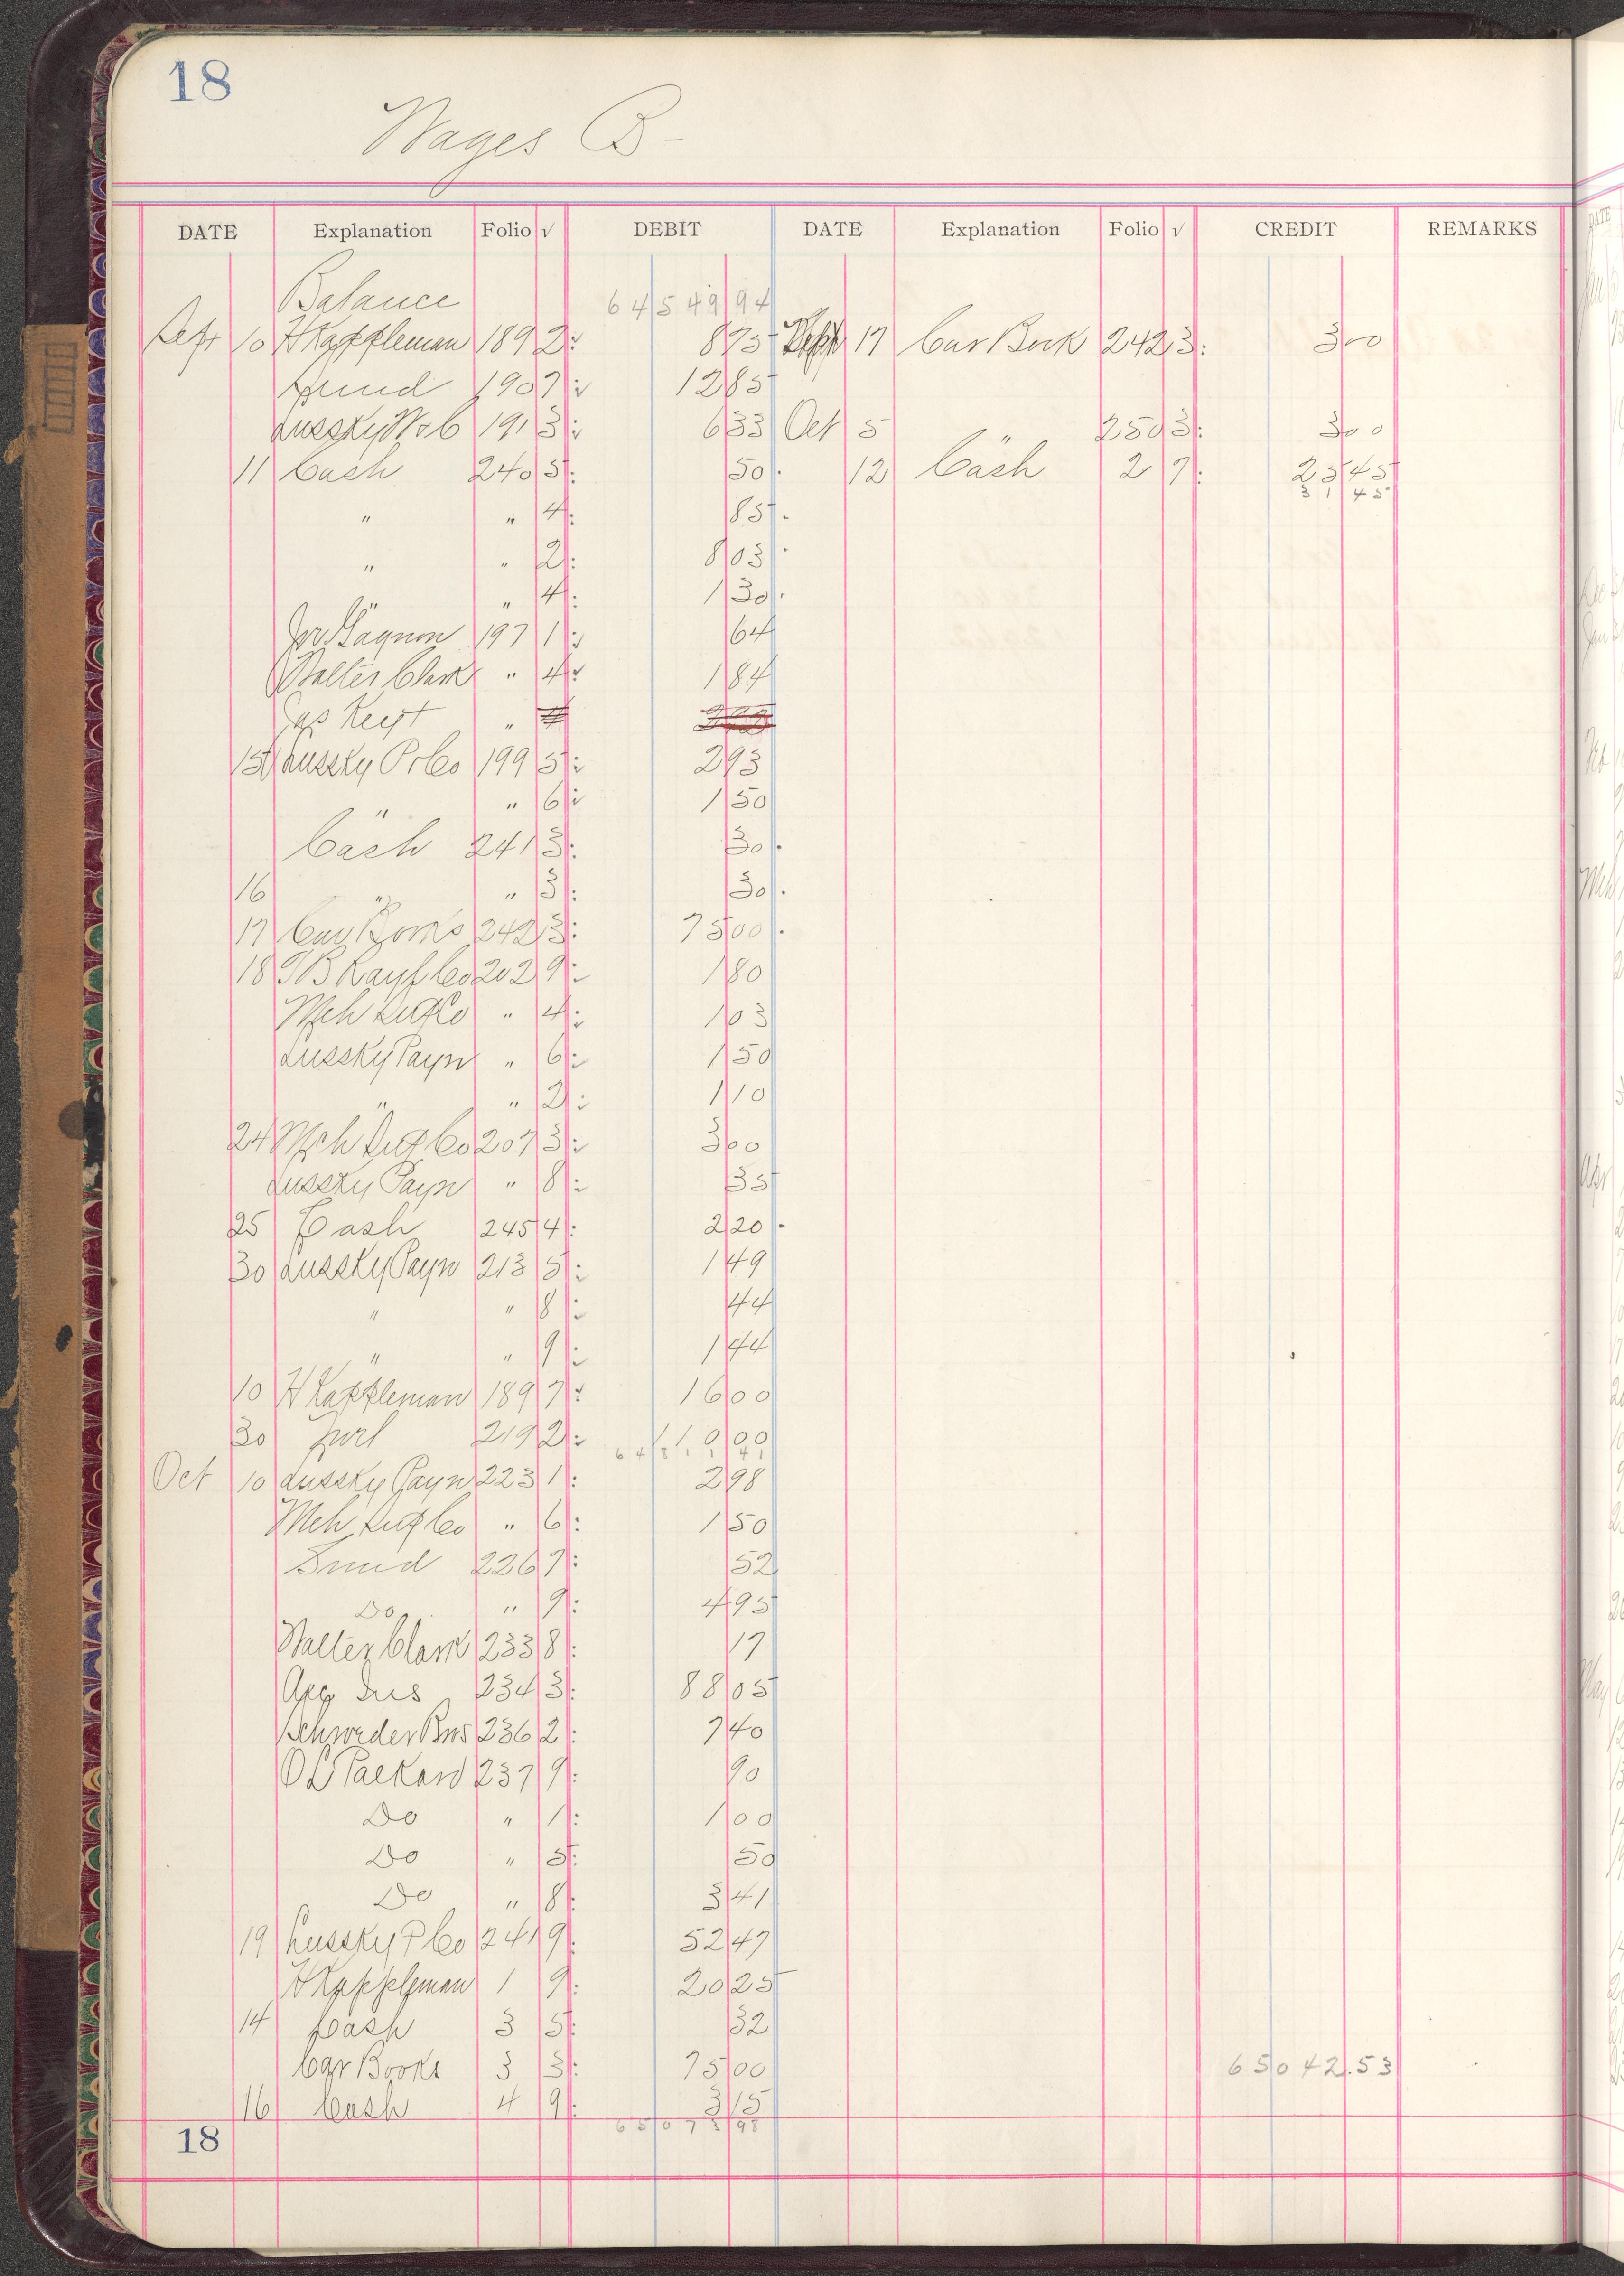 18
Wages B -
DATE Explanation Folio √ DEBIT DATE Explanation Folio √ CREDIT REMARKS
Balance 64549 94
Sept 10 H Kappleman 189 2 8 75 Sept 17 Car Book 242 3 3 00
Sund 190 7 12 85
Lussky W & C 191 3 6 33 Oct 5 250 3 3 00
11 Cash 240 5 50 12 Cash 2 7 25 45
31 45
" " 4 85
" " 2 8 03
" 4 1 30
Jos Gagnon 197 1 64
Walter Clark " 4 1 84
"
15 Lussky P & Co 199 5 2 93
" " 6 1 50
Cash 241 3 30
16 " " 3 30
17 Car Books 242 3 75 00
18 T B Rayl Co 202 9 1 80
Mch Sup Co " 4 1 03
Lussky Payn " 6 1 50
" " 2 1 10
24 Mch Sup Co 207 3 3 00
Lussky Payn " 8 35
25 Cash 245 4 2 20
30 Lussky Payn 213 5 1 49
" " 8 44
" " 9 1 44
10 H Kappleman 189 7 16 00
30 219 2 110 00
Oct 10 Lussky Payn 223 1 2 98
Mch Sup Co " 6 1 50
Sund 226 7 52
Do " 9 4 95
Walter Clark 233 8 17
234 3 88 05
Schroeder Bros 236 2 7 40
O L Packard 237 9 90
Do " 1 1 00
Do " 5 50
Do " 8 3 41
19 Lussky P Co 241 9 52 47
H Kappleman 1 9 20 25
14 Cash 3 5 32
Car Books 3 3 75 00 65042.53
16 Cash 4 9 3 15
65073 98
18